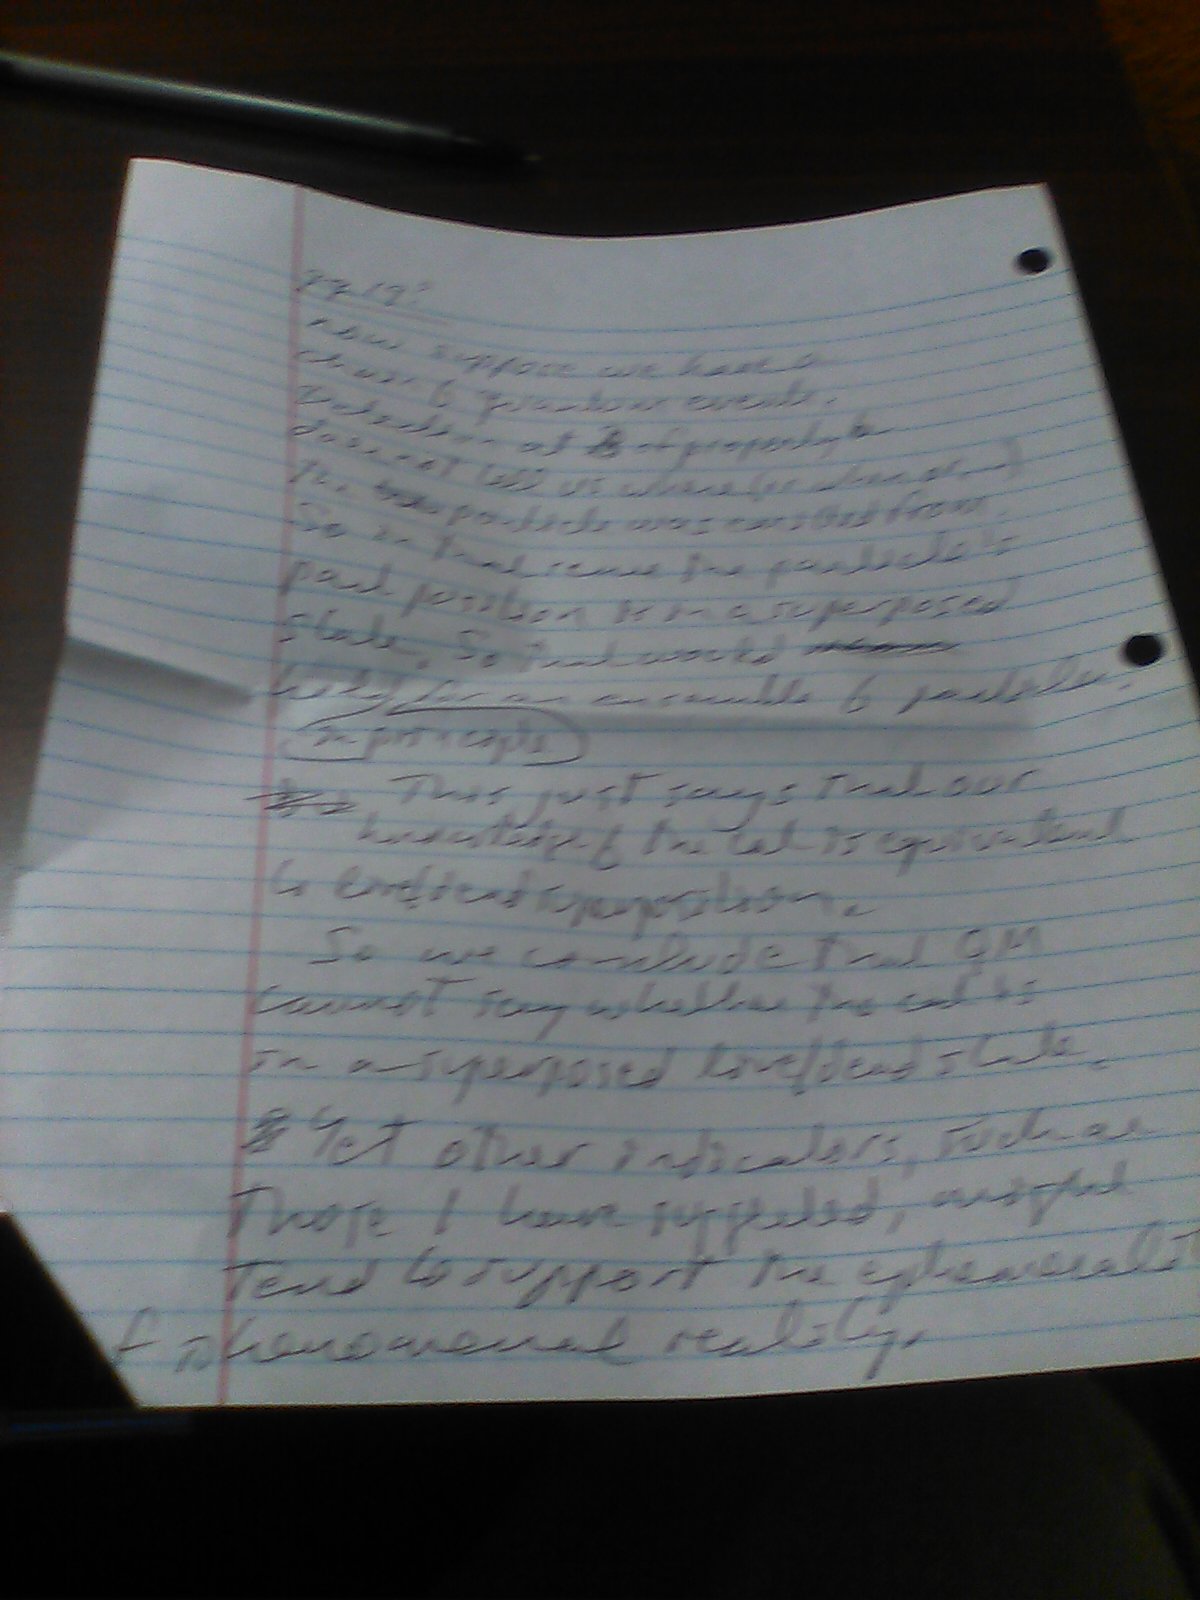 now suppose we have a
chain of quantum events.
Detection at B of property b
does not tell us where (or when or
the particle was emitted from.
So in that sense the particle's
past position is in a superposed
state. So that would
hold for an ensemble of particles.
in principle
This just says that our
knowledge of the cat is equivalent
to live/dead superposition.
So we conclude that QM
cannot say whether the cat is
in a superposed live/dead state.
Yet other indicators, such as
Those I have suggested, might
Tend to support the ephemeralit
f phenomenal reality.